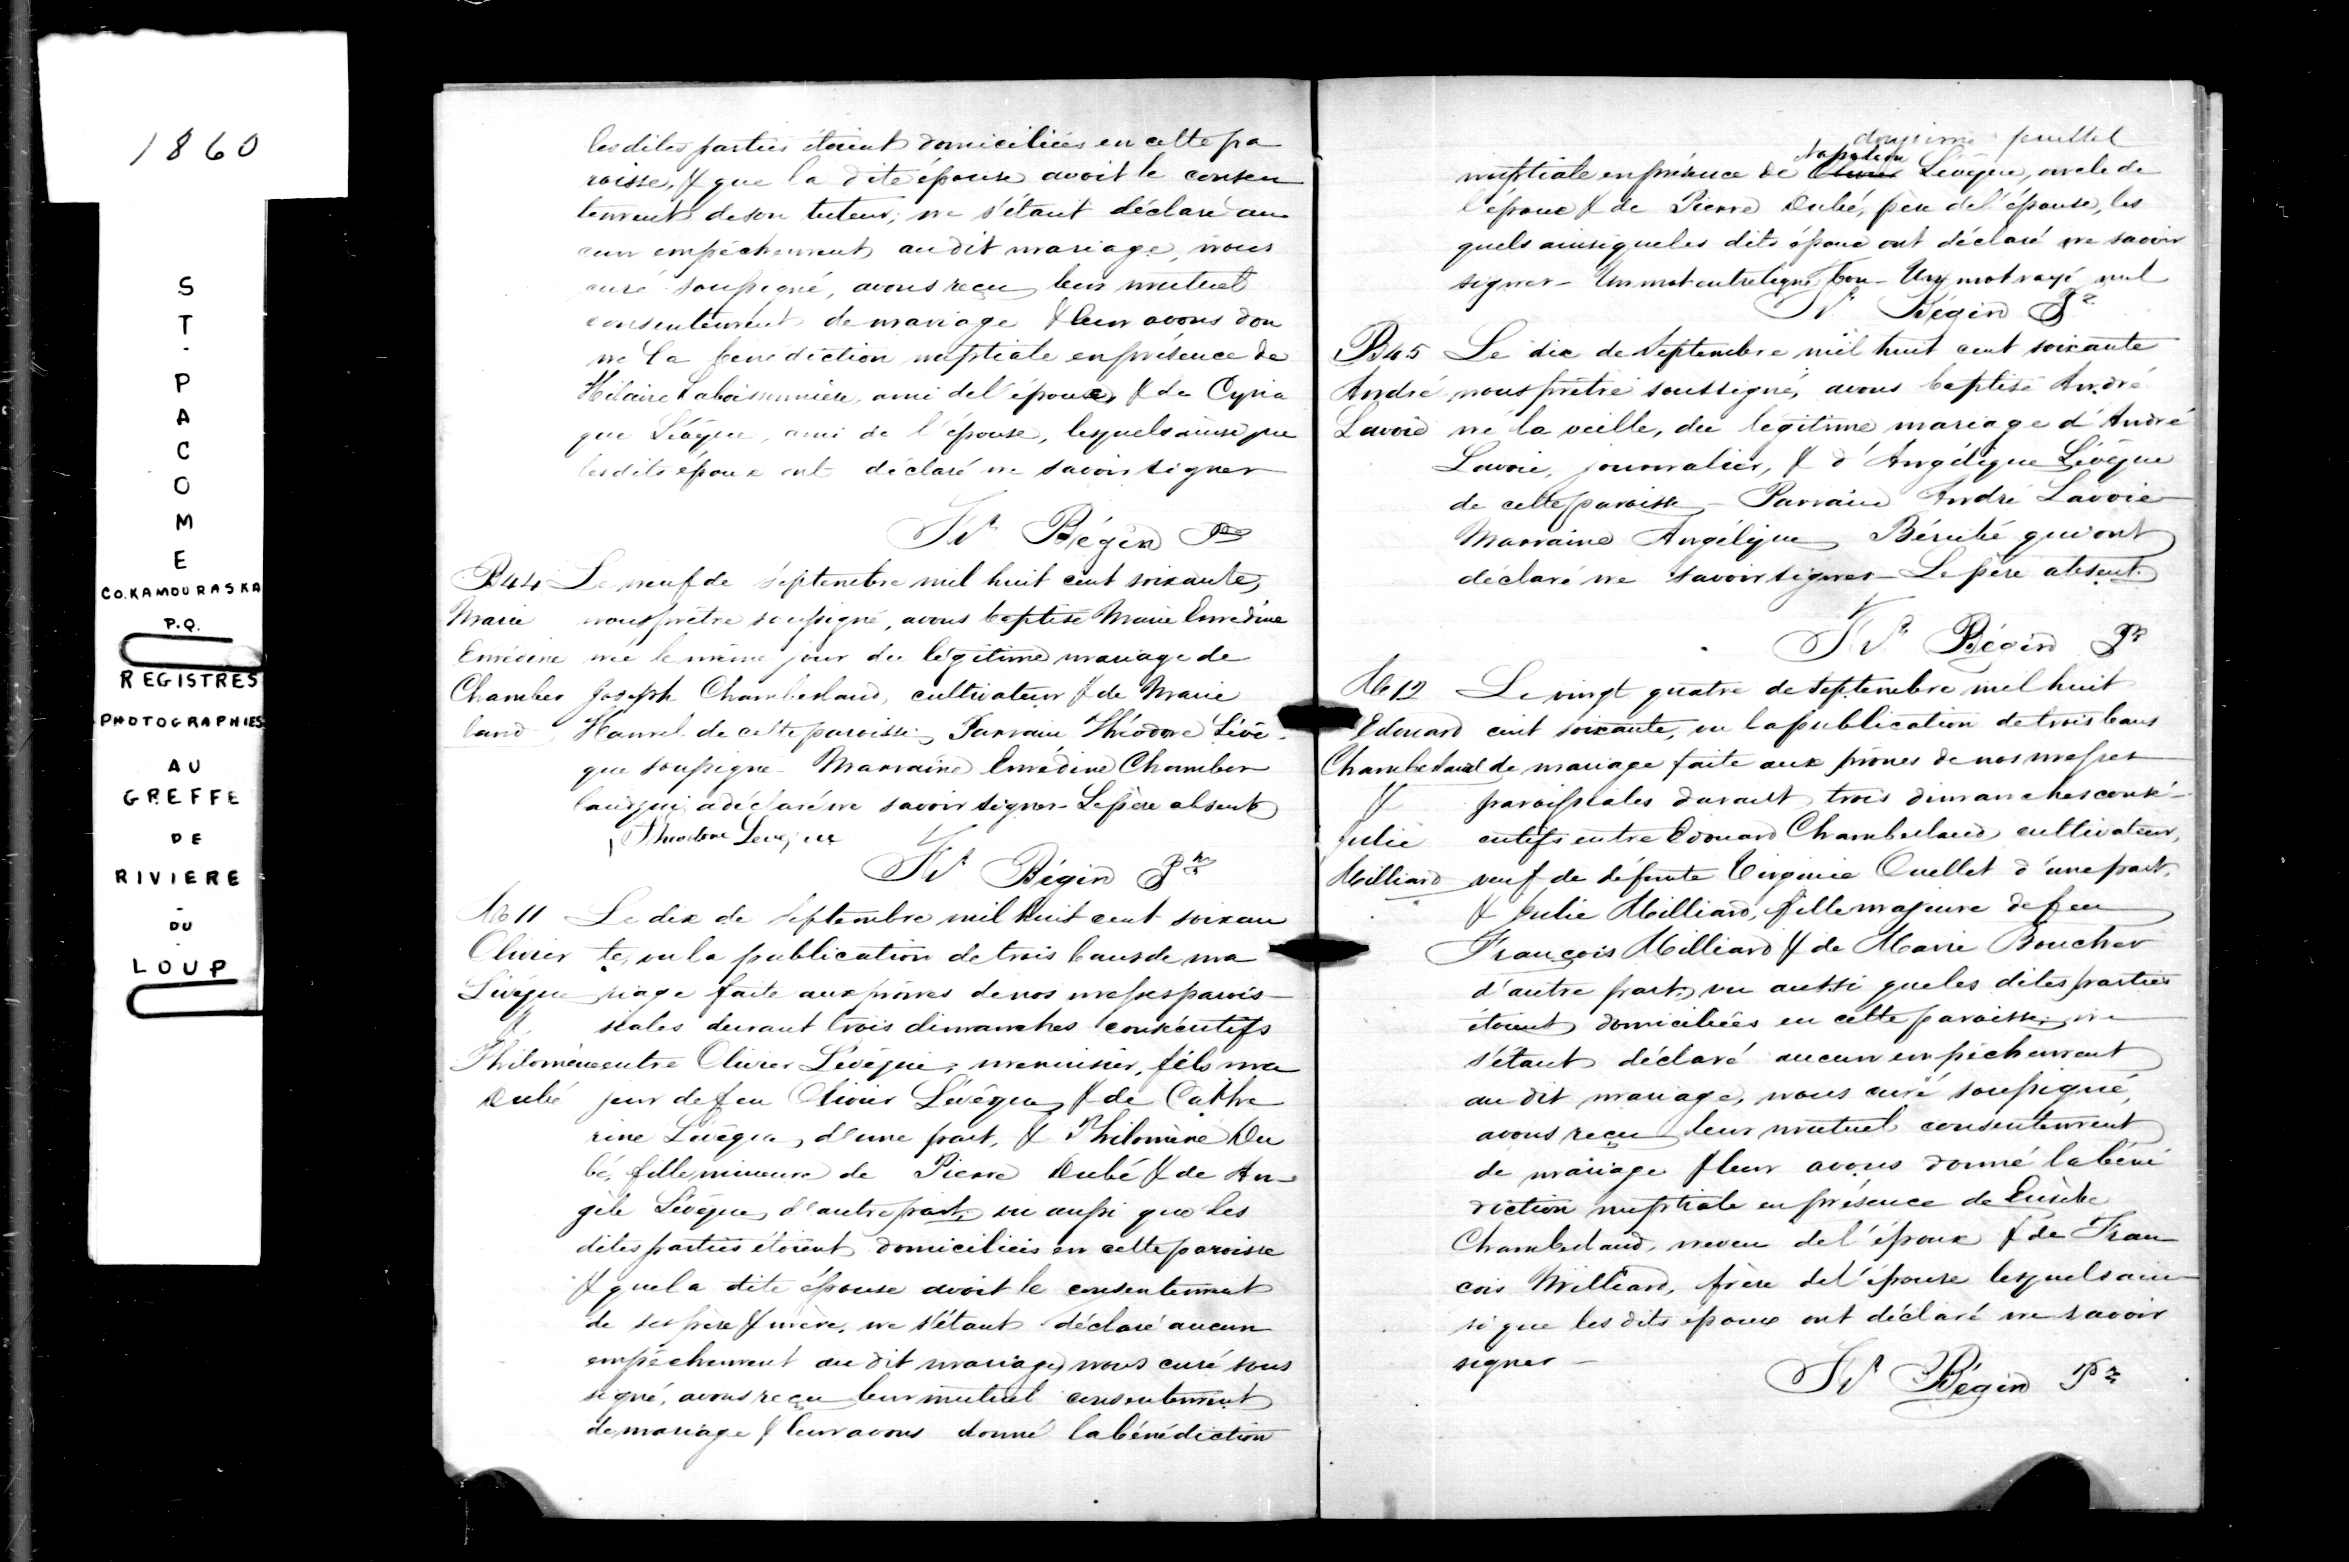 1860
ST. PACOME
CO. KAMOURASKA
P.Q.
REGISTRES
PHOTOGRAPHIES
AU
GREFFE
DE
RIVIERE
-
DU
LOUP
les dites parties étoient domiciliées en cette pa
roisse, & que la dite épouse avoit le consen
tement de son tuteur; ne s'étant déclaré au
cun empêchement au dit mariage, nous
curé soussigné, avons reçu leur mutuel
consentement de mariage & leur avons don
né la bénédiction nuptiale en présence de
Hilaire Laboissonnière, ami de l'époux, & de Cyria
que Lévêque, ami de l'épouse, lesquels ainsi que
les dits époux ont déclaré ne savoir signer
Bégin Ptre
B44 Le neuf de septembre mil huit cent soixante,
Marie nous prêtre soussigné, avons baptisé Marie Emédine
Emédine née le même jour du légitime mariage de
Chamber Joseph Chamberland, cultivateur & de Marie
land de cette paroisse. Parrain Théodore Lévê-
que soussigné. Marraine Emédine Chamber
land qui a déclaré ne savoir signer. Le père absent
Theodore Leveque
Bégin Ptre
M11 Le dix de septembre mil huit cent soixan
Olivier te, vu la publication de trois bans de ma
Lévêque riage faite aux prônes de nos messes parois-
& siales durant trois dimanches consécutifs
Philomène entre Olivier Lévêque, menuisier, fils ma
Dubé jeur de feu Olivier Lévêque & de Cathe
rine Lévêque, d'une part, & Philomène Du
bé, fille mineure de Pierre Dubé & de An-
gèle Lévêque, d'autre part; vu aussi que les
dites parties étoient domiciliées en cette paroisse
& que la dite épouse avoit le consentement
de ses père & mère, ne s'étant déclaré aucun
empêchement au dit mariage, nous curé sous
signé, avons reçu leur mutuel consentement
de mariage & leur avons donné la bénédiction
douzième feuillet
nuptiale en présence de Napoléon Olivier Lévêque, oncle de
l'époux & de Pierre Dubé, père de l'épouse, les
quels ainsi que les dits époux ont déclaré ne savoir
signer - Un mot entreligne bon - Un mot rayé nul
Bégin Ptre
B45 Le dix de septembre mil huit cent soixante
André nous prêtre soussigné, avons baptisé André
Lavoie né la veille, du légitime mariage d'André
Lavoie, journalier, & d'Angélique Lévêque
de cette paroisse - Parrain André Lavoie
Marraine Angélique Bérubé qui ont
déclaré ne savoir signer - Le père absent.
Bégin Ptre
M12 Le vingt quatre de septembre mil huit
Edouard cent soixante, vu la publication de trois bans
Chamberland de mariage faite aux prônes de nos messes
& paroissiales durant trois dimanches consé-
Julie cutifs entre Edouard Chamberland cultivateur,
Milliard veuf de défunte Virginie Ouellet d'une part,
& Julie Milliard, fille majeure de feu
François Milliard & de Marie Boucher
d'autre part; vu aussi que les dites parties
étoient domiciliées en cette paroisse; ne
s'étant déclaré aucun empêchement
au dit mariage, nous curé soussigné,
avons reçu leur mutuel consentement
de mariage & leur avons donné la béné
diction nuptiale en présence de Eusèbe
Chamberland, neveu de l'époux & de Fran
çois Milliard, frère de l'épouse lesquels ain
si que les dits époux ont déclaré ne savoir
signer -
Bégin Ptre